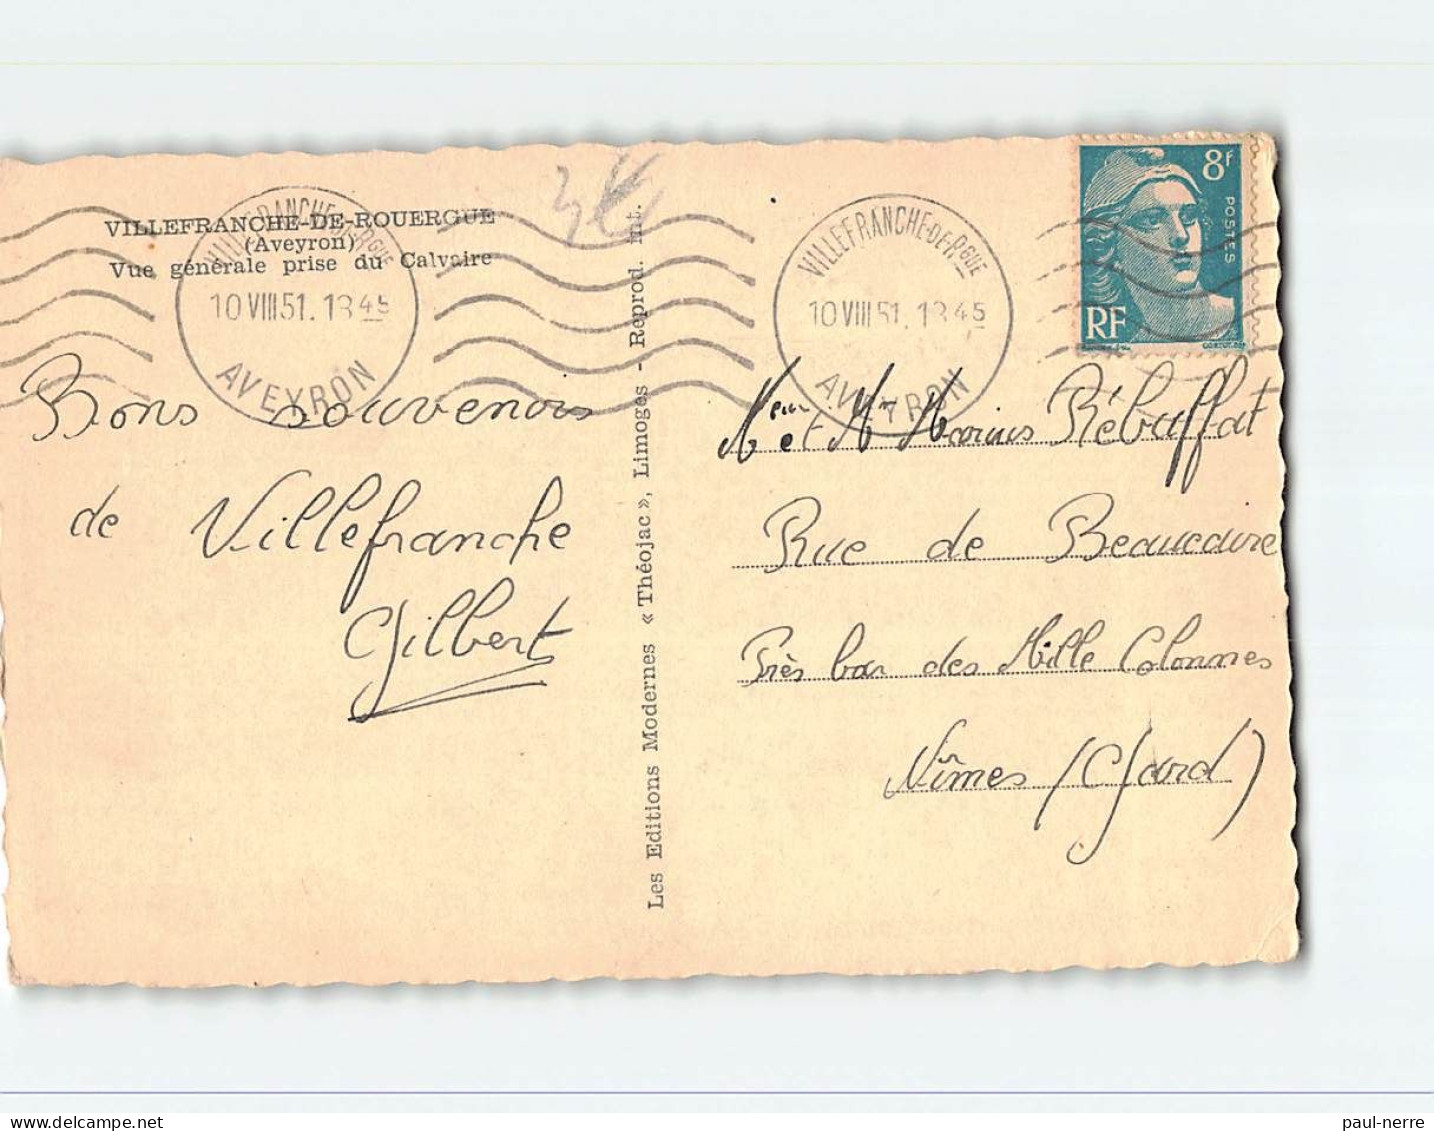 VILLEFRANCHE-DE-ROUERGUE
(Aveyron)
Vue générale prise du Calvaire
10 VIII 51. 18 45
AVEYRON
VILLEFRANCHE-DE-RGUE
10 VIII 51. 18 45
AVEYRON
8F
POSTES
RF
Bons souvenirs
de Villefranche
Gilbert
Les Editions Modernes « Théojac », Limoges - Reprod. int.
et Mr Marius Rébuffat
Rue de Beaucaire
Près bar des Mille Colonnes
Nîmes (Gard)
paul-nerre